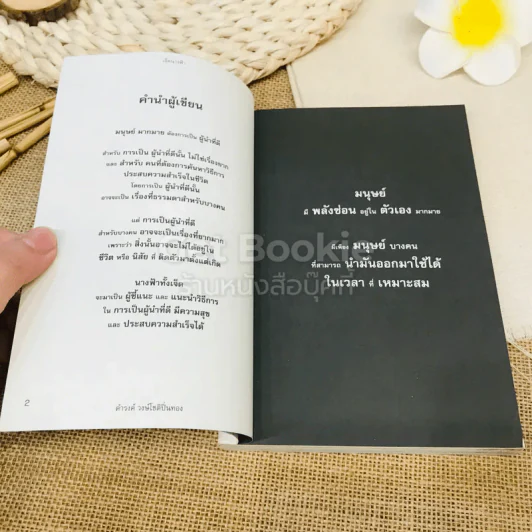 คำนำผู้เขียน
มนุษย์ มากมาย ต้องการเป็น ผู้นำที่ดี
สำหรับ การเป็น ผู้นำที่ดีนั้น ไม่ใช่เรื่องยาก
และ สำหรับ คนที่ต้องการค้นหาวิธีการ
ประสบความสำเร็จในชีวิต
โดยการเป็น ผู้นำที่ดีนั้น
อาจจะเป็น เรื่องที่ธรรมดาสำหรับบางคน
แต่ การเป็นผู้นำที่ดี
สำหรับบางคน อาจจะเป็นเรื่องที่ยากมาก
เพราะว่า สิ่งนั้นอาจจะไม่ได้อยู่ใน
ชีวิต หรือ นิสัย ที่ ติดตัวมาตั้งแต่เกิด
นางฟ้าทั้งเจ็ด
จะมาเป็น ผู้ชี้แนะ และ แนะนำวิธีการ
ใน การเป็นผู้นำที่ดี มีความสุข
และ ประสบความสำเร็จได้
2
ดำรงค์ วงษ์โชติปิ่นทอง
มนุษย์
มี พลังซ่อน อยู่ใน ตัวเอง มากมาย
มีเพียง มนุษย์ บางคน
ที่สามารถ นำมันออกมาใช้ได้
ในเวลา ที่ เหมาะสม
Bookie
ร้านหนังสือบุ๊คกี้